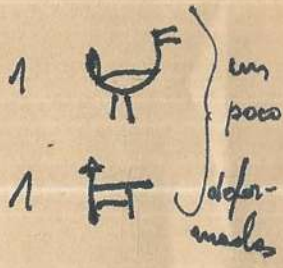 1
un
poco
1
defor-
mados